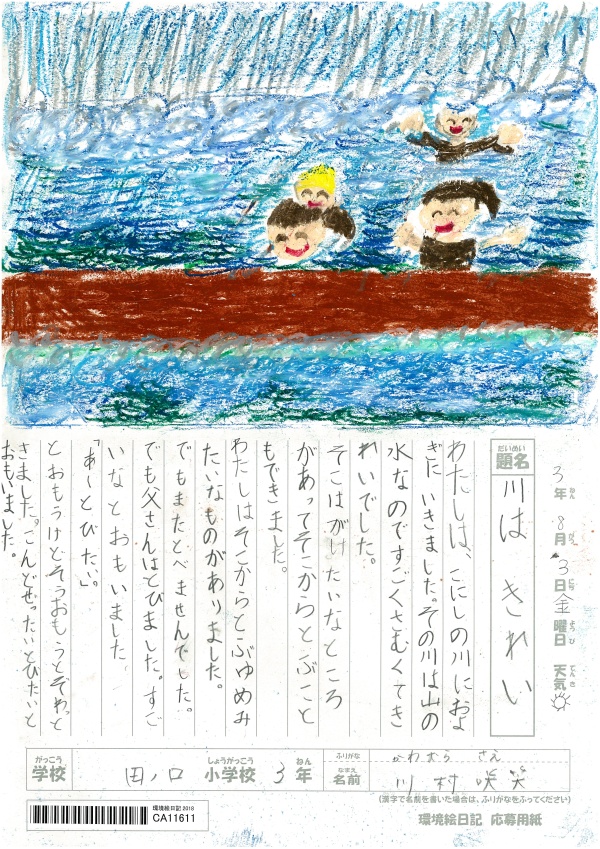 3年 8月 3日 金曜日 天気
ねん がつ にち ようび てんき
だいめい
題名
川は きれい
わたしは、こにしの川におよ
ぎに いきました。その川は山の
水なのですごくさむくてき
れいでした。
そこはがけみたいなところ
があってそこからとぶこと
もできました。
わたしはそこからとぶゆめみ
たいなものがありました。
でもまたとべませんでした。
でも父さんはとびました。すご
いなとおもいました
「あーとびたい。」
とおもうけどそうおもうとぞわっと
きました。こんどぜったいとびたいと
おもいました。
がっこう しょうがっこう ねん
学校 田ノ口 小学校 3年
ふりがな かわむら さえ
なまえ
名前 川村 咲笑
(漢字で名前を書いた場合は、ふりがなをふってください)
環境絵日記 2018
CA11611
環境絵日記 応募用紙